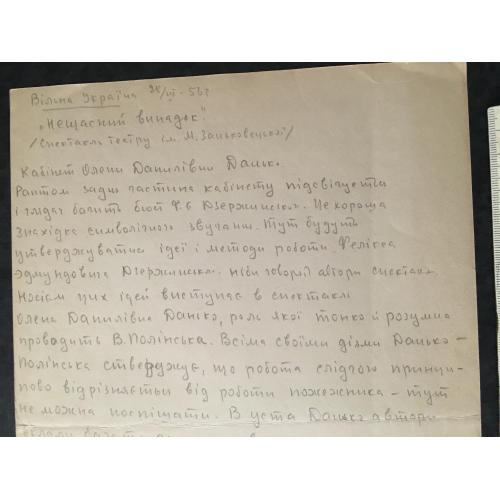 Вільна Україна 24/VI - 56 г
"Нещасний випадок".
/Спектакль театру ім. М. Заньковецької/
Кабінет Олени Данилівни Данько.
Раптом задня частина кабінету підсвічується
і глядач бачить бюст Ф. Е. Дзержинського. Це хороша
знахідка символічного звучання. Тут будуть
утверджуватись ідеї і методи роботи Фелікса
Эдмундовича Дзержинського. ніби говорять автори спектаклю.
Носієм цих ідей виступає в спектаклі
Олена Данилівна Данько, роль якої тонко й розумно
проводить В. Полінська. Всіма своїми діями Данько -
Полінська стверджує, що робота слідчого принци-
пово відрізняється від роботи пожежника - тут
не можна поспішати. В уста Данько автори